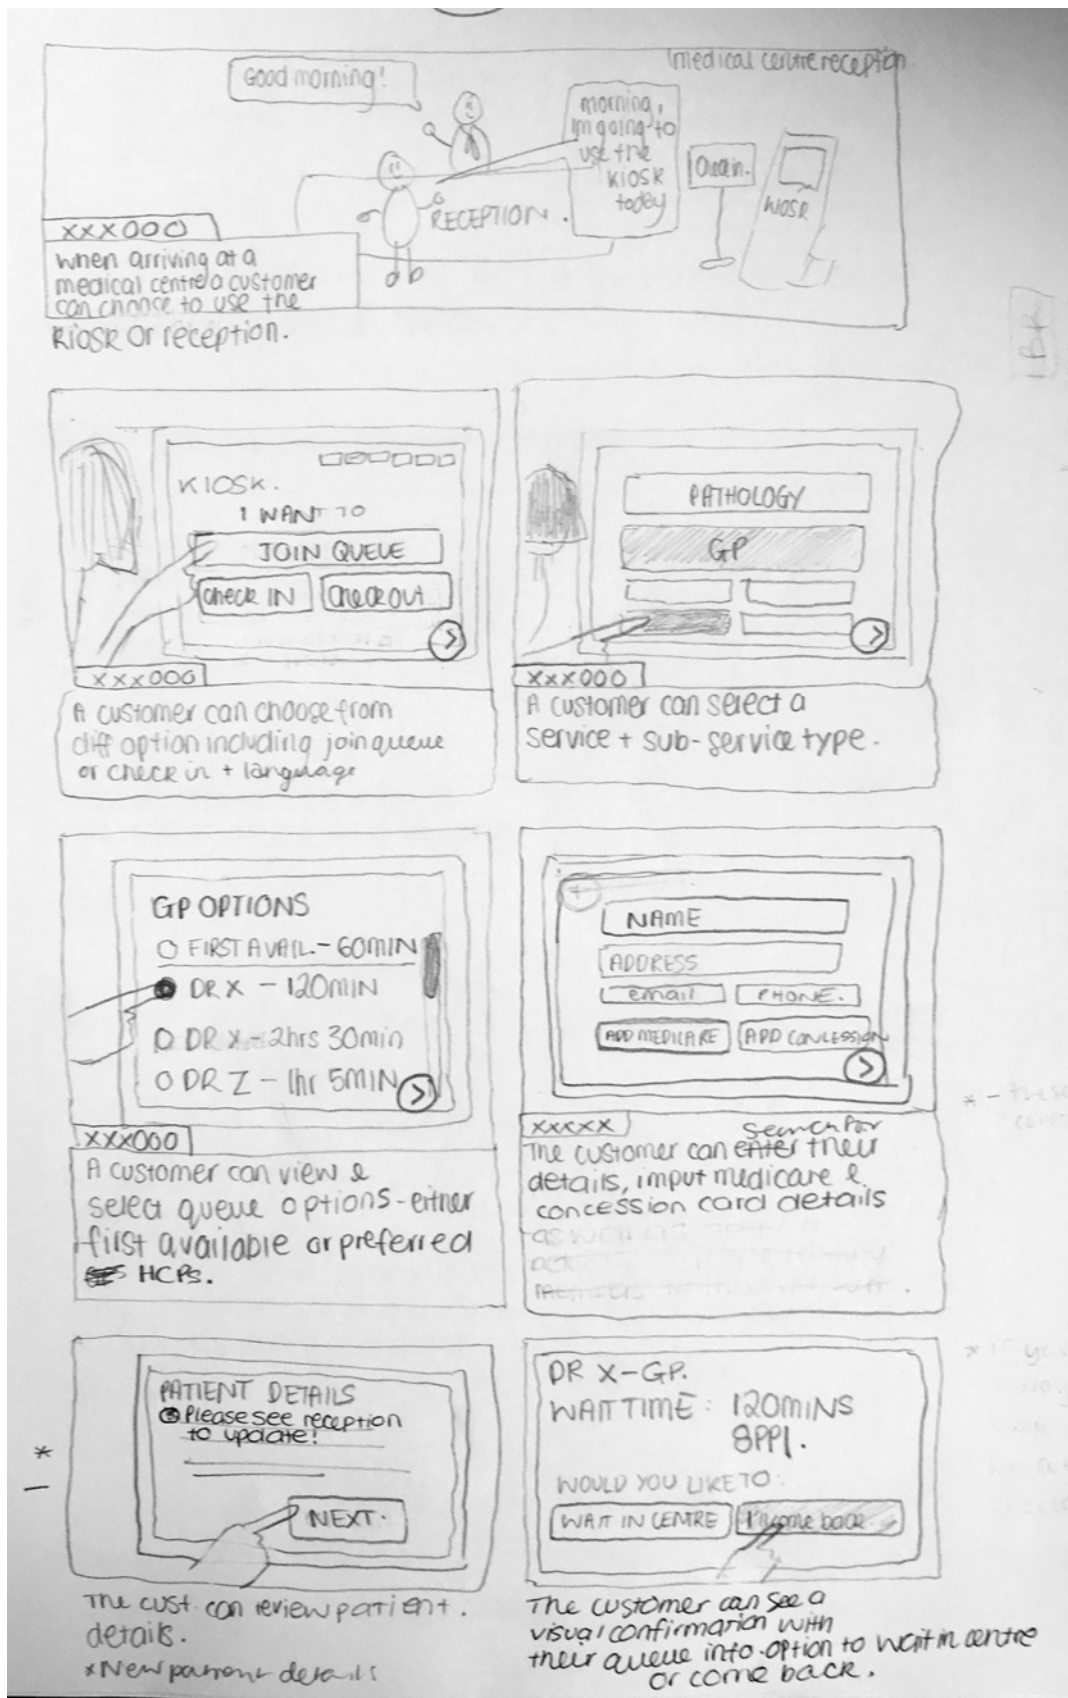 medical centre reception
Good morning!
morning,
Im going to
use the
KIOSK
today
RECEPTION.
KIOSK
XXX000
when arriving at a
medical centre a customer
can choose to use the
KIOSK or reception.
KIOSK.
I WANT TO
JOIN QUEUE
check IN
Check OUT
XXX000
A customer can choose from
diff option including join queue
or check in + language
PATHOLOGY
GP
XXX000
A customer can select a
service + sub-service type.
GP OPTIONS
FIRST AVAIL. - 60MIN
DR X - 120MIN
DR Y - 2hrs 30min
DR Z - 1hr 5MIN
XXX000
A customer can view &
select queue options - either
first available or preferred
HCPs.
NAME
ADDRESS
email
PHONE.
ADD MEDICARE
ADD CONCESSION
XXXXX
search for
The customer can enter their
details, imput medicare &
concession card details
as well as
PATIENT DETAILS
Please see reception
to update!
NEXT.
The cust. can review patient.
details.
*New patient details
DR X-GP.
WAIT TIME: 120MINS
8PPl.
WOULD YOU LIKE TO:
WAIT IN CENTRE
I'll come back.
The customer can see a
visual confirmation with
their queue info. option to wait in centre
or come back.